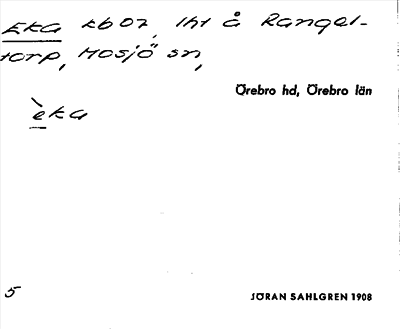 Eka tb 07, lht å Rangel-
torp, Mosjö sn,
Örebro hd, Örebro län
èka
5
JÖRAN SAHLGREN 1908